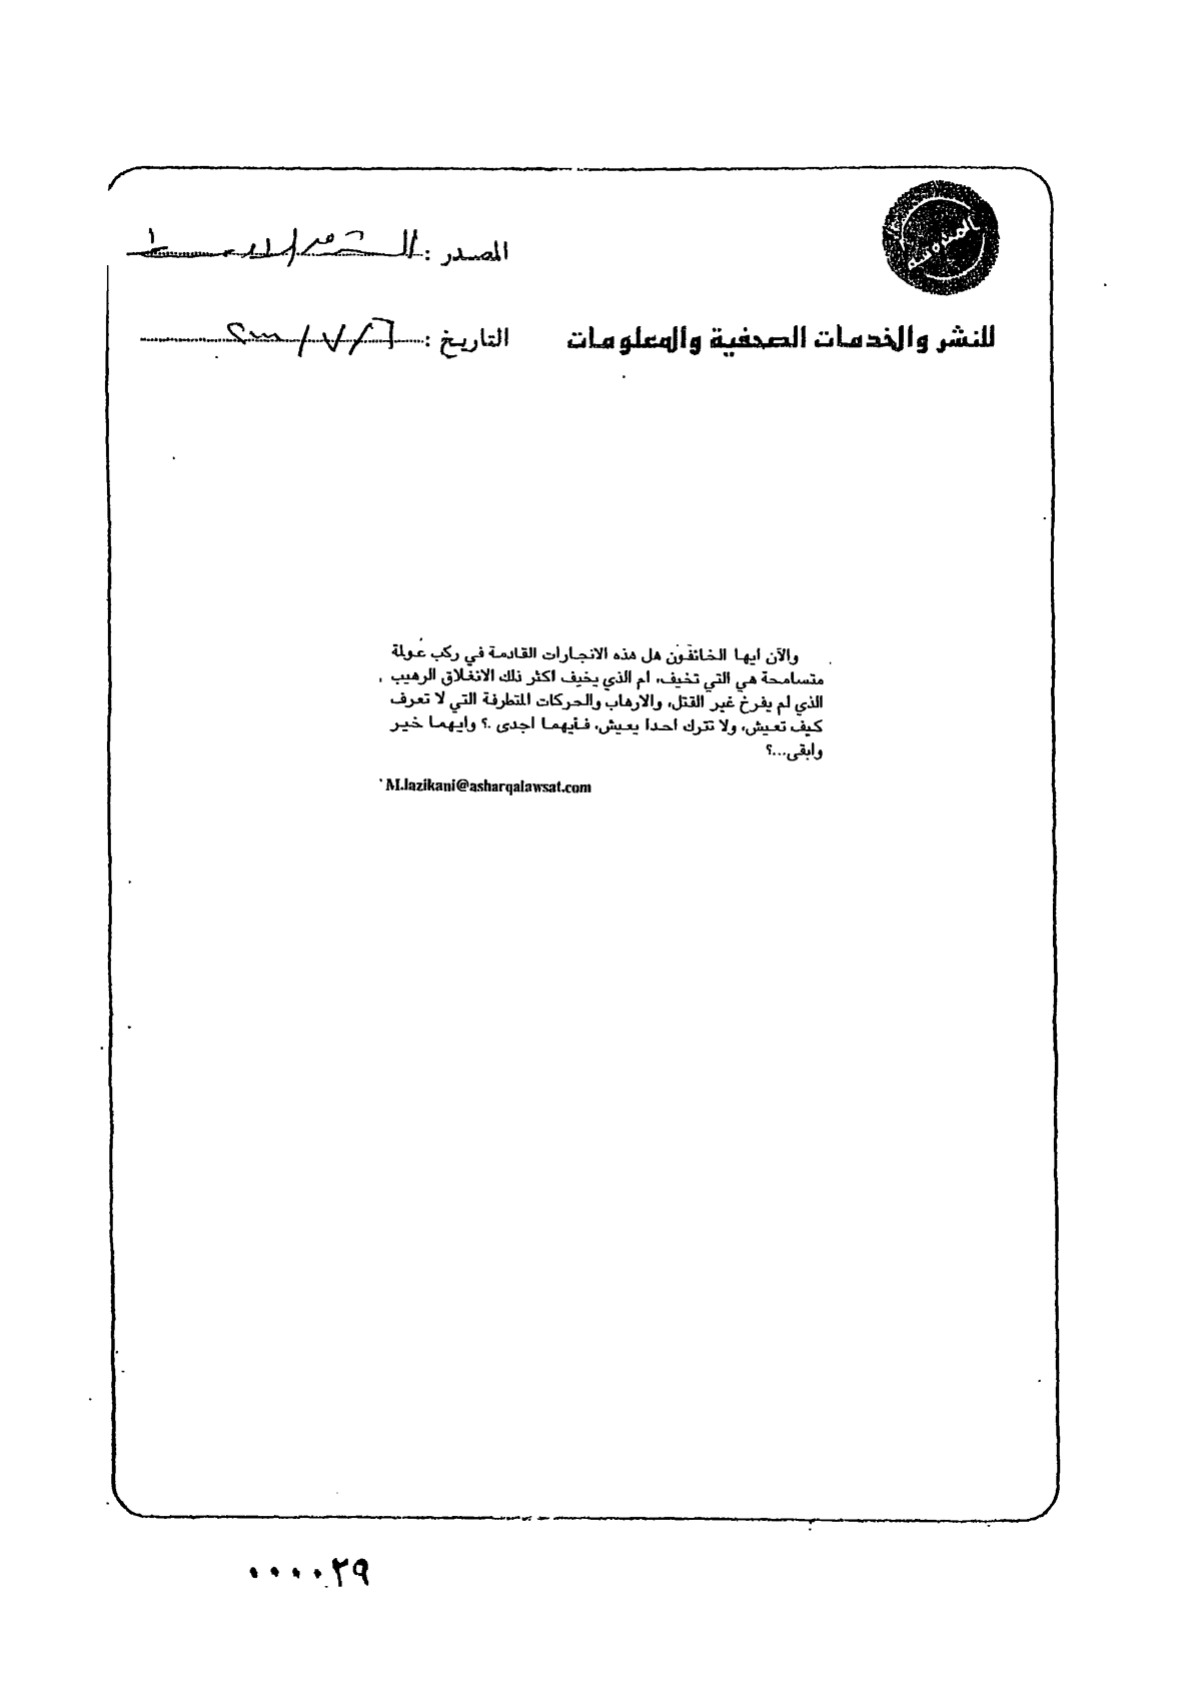 المحروسة
المصدر : الشرق الاوسط
للنشر والخدمات الصحفية والمعلومات
التاريخ : ٦ / ٧ /
والآن ايها الخائفون هل هذه الانجازات القادمة في ركب عولة
متسامحة هي التي تخيف، ام الذي يخيف اكثر ذلك الانغلاق الرهيب
الذي لم يفرخ غير القتل، والارهاب والحركات المتطرفة التي لا تعرف
كيف تعيش، ولا تترك احدا يعيش، فأيهما اجدى .؟ وايهما خير
وابقى...؟
M.lazikani@asharqalawsat.com
٠٠٠٠٢٩